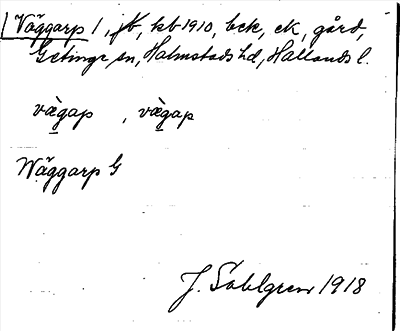 Väggarp 1, jb, kb 1910, bck, ck, gård,
Getinge sn, Halmstads hd, Hallands l.
vägap , vägap
Wäggarp G
J. Sahlgren 1918